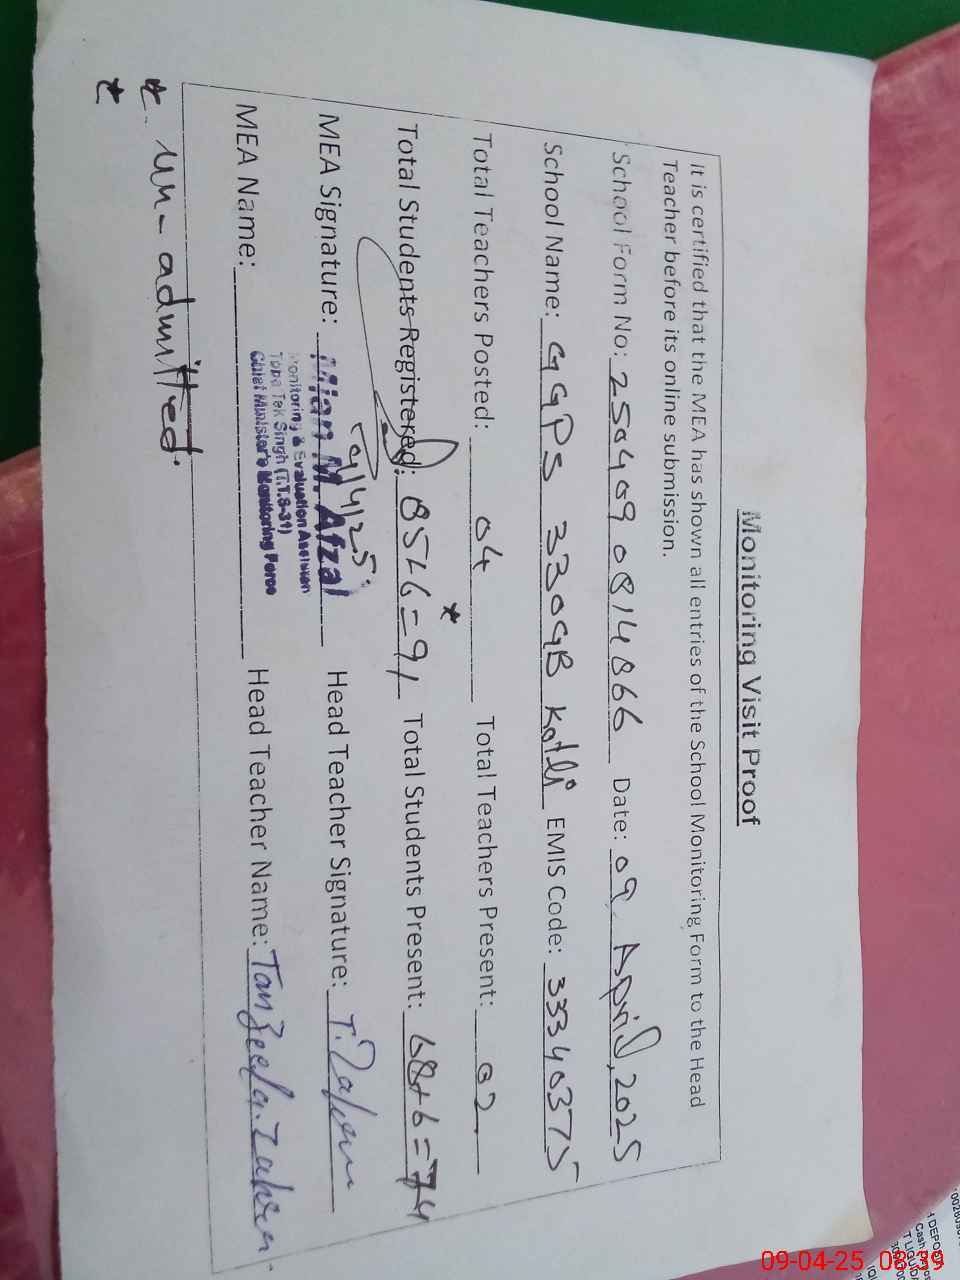 Monitoring Visit Proof
It is certified that the MEA has shown all entries of the School Monitoring Form to the Head
Teacher before its online submission.
School Form No: 250409 0814866 Date: 09, April, 2025
School Name: GGPS 330GB Kotli EMIS Code: 33340375
Total Teachers Posted: 04 Total Teachers Present: 02
Total Students Registered: 85+6=91 * Total Students Present: 68+6=74
9/4/25.
MEA Signature: Mian M. Afzal Head Teacher Signature: T.
Monitoring & Evaluation Assistan
Toba Tek Singh (T.T.S-31)
Chief Minister's Monitoring Force
MEA Name: Head Teacher Name: Tanzeela.
* un-admitted.
*
H DEPO
Cash
T LIQUID
09-04-25 08:39